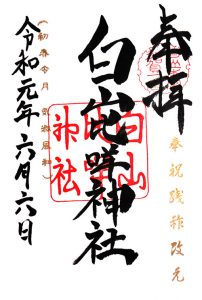 奉拝
奉祝践祚改元
白山比咩神社
白山
比咩
神社
(初春令月 気淑風和)
令和元年六月六日